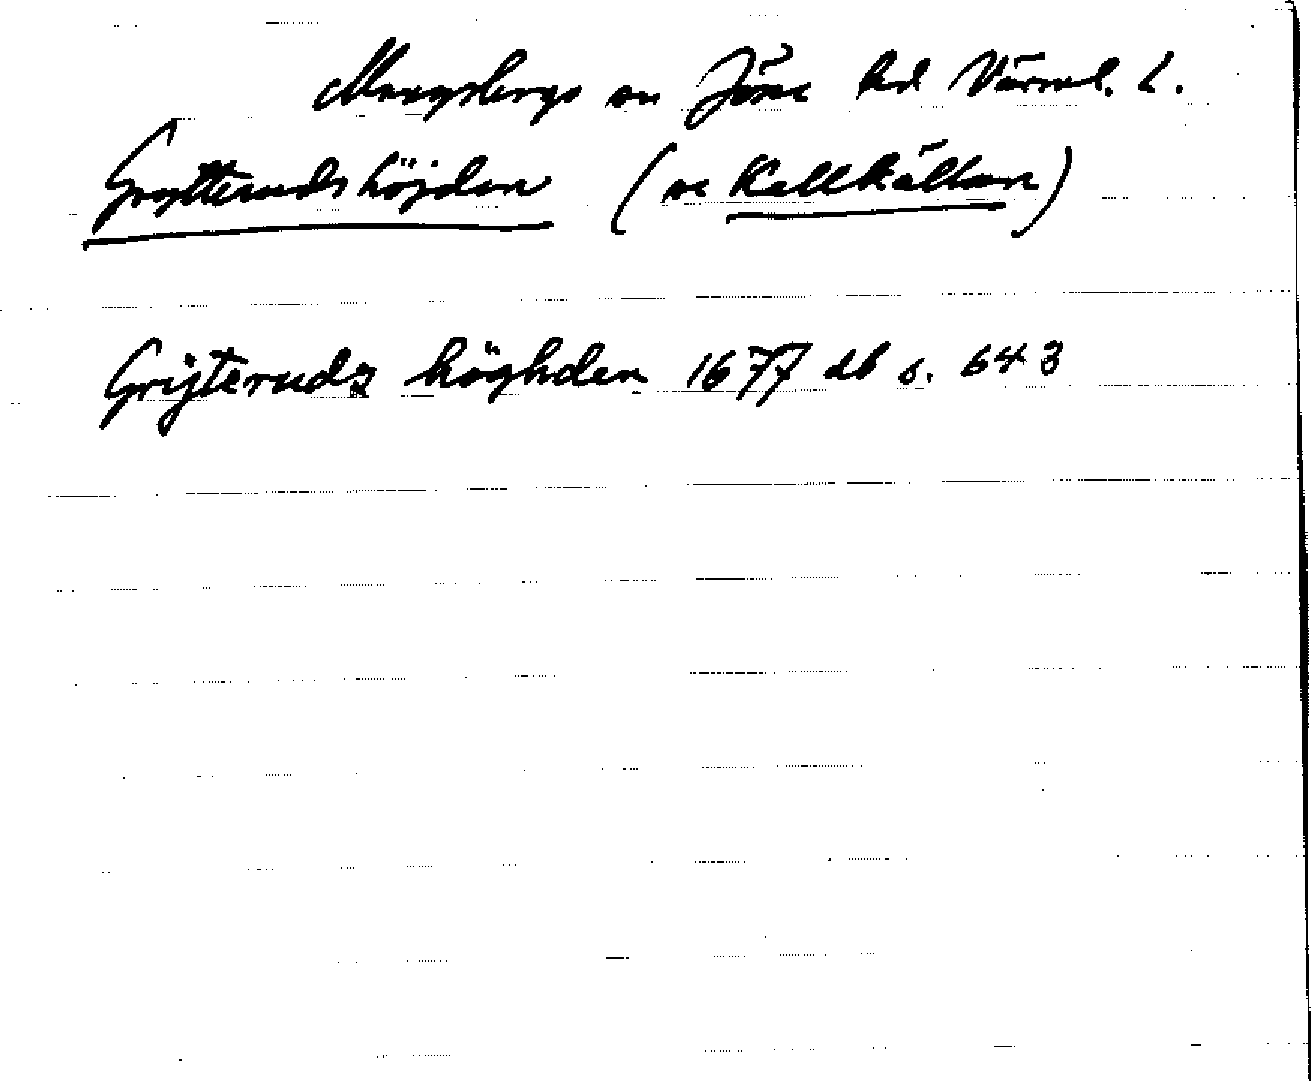 Mangskogs sn Jösse hd Värml. l.
Grytterudshöjden (se Kallkällan)
Grijterudz höghden 1677 db s. 643